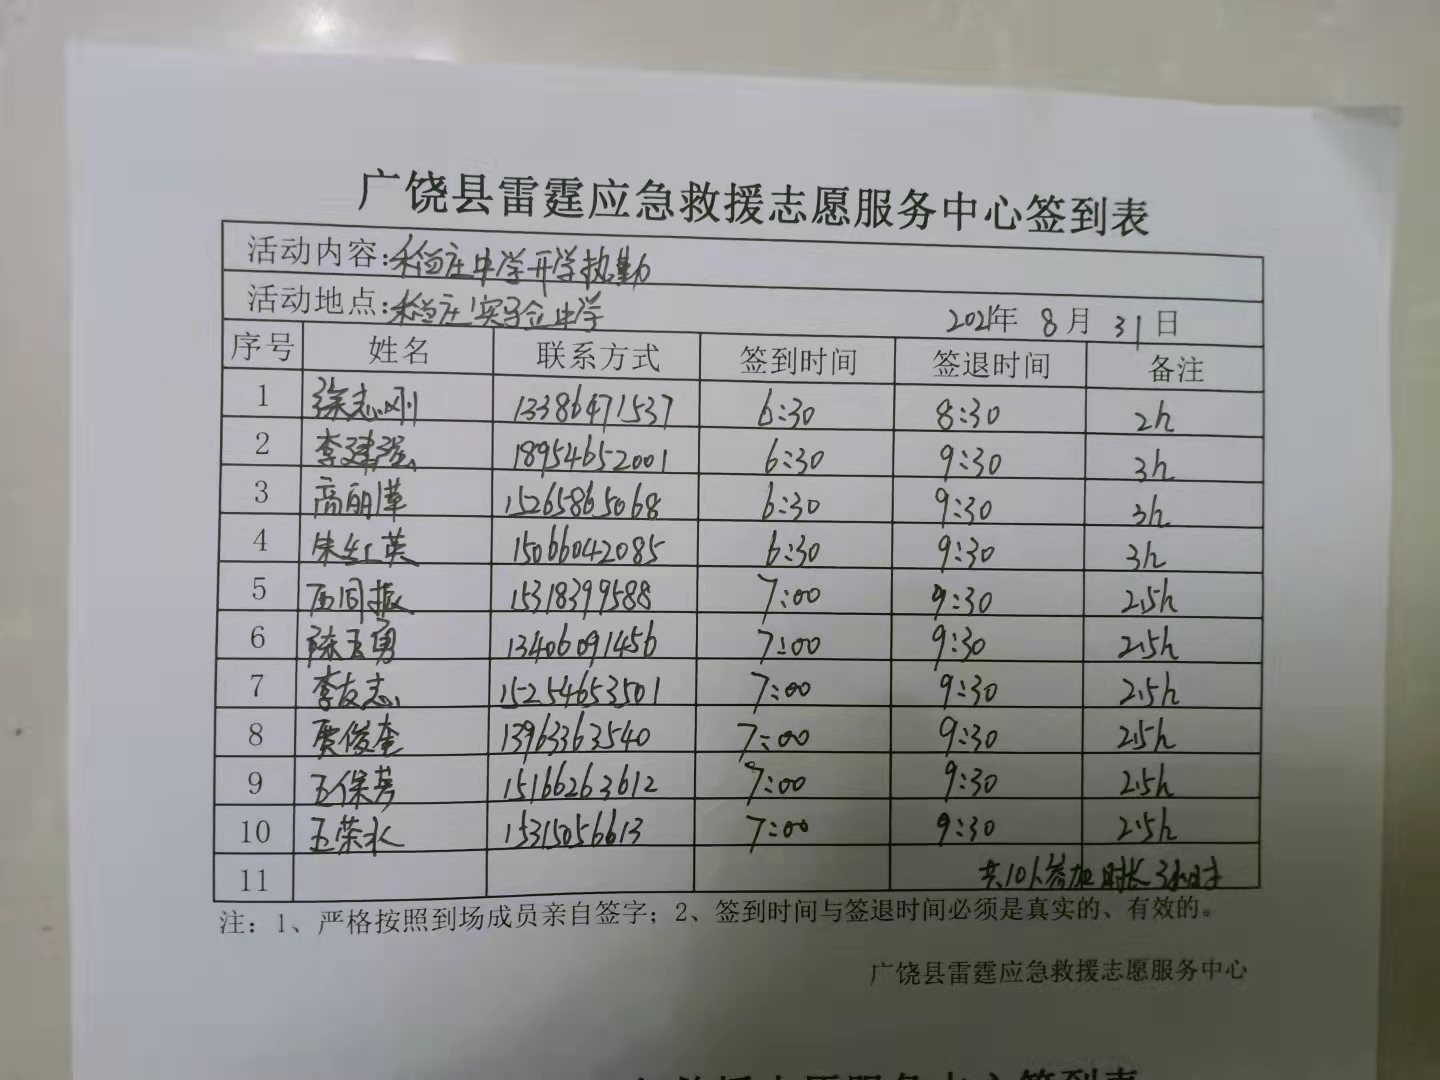 广饶县雷霆应急救援志愿服务中心签到表
活动内容:稻庄中学开学执勤
活动地点:稻庄实验中学 2021年 8月 31日
序号 姓名 联系方式 签到时间 签退时间 备注
1 徐志刚 13386471537 6:30 8:30 2h
2 李建强 18954652001 6:30 9:30 3h
3 高丽萍 15265865068 6:30 9:30 3h
4 朱红英 15066042085 6:30 9:30 3h
5 15318399588 7:00 9:30 2.5h
6 陈玉勇 13406091456 7:00 9:30 2.5h
7 李友志 15254653501 7:00 9:30 2.5h
8 贾俊奎 13963363540 7:00 9:30 2.5h
9 王保芳 15166263612 7:00 9:30 2.5h
10 王荣水 15315056613 7:00 9:30 2.5h
11 共10人参加 时长3小时
注：1、严格按照到场成员亲自签字；2、签到时间与签退时间必须是真实的、有效的。
广饶县雷霆应急救援志愿服务中心